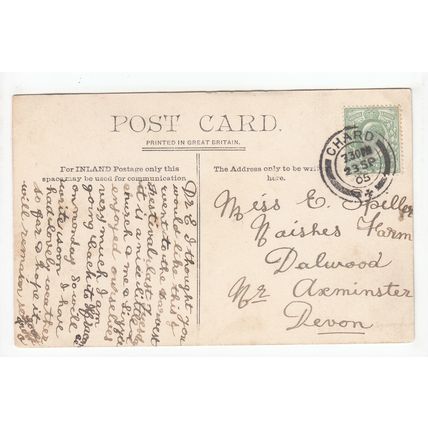 POST CARD.
PRINTED IN GREAT BRITAIN.
For INLAND Postage only this
space may be used for communication
The Address only to be
here.
CHARD
7.30PM
23 SP
05
Dr E. I thought you
would like this. I
went to the Harvest
festival last Tuesday
it is a nice little
church
enjoyed ourselves
very much. I am
going back to
on monday so will
write soon I have
had lovely weather
so far & hope it
will remain so
Miss E. Spiller
Naishes Farm
Dalwood
Nr Axminster
Devon